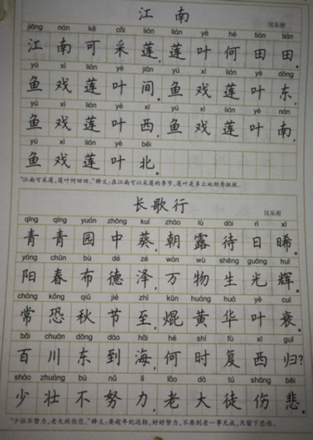 江南
汉乐府
jiāng nán kě cǎi lián lián yè hé tián tián
江南可采莲,莲叶何田田。
yú xì lián yè jiān yú xì lián yè dōng
鱼戏莲叶间。鱼戏莲叶东,
yú xì lián yè xī yú xì lián yè nán
鱼戏莲叶西,鱼戏莲叶南,
yú xì lián yè běi
鱼戏莲叶北。
"江南可采莲,莲叶何田田。"释义:在江南可以采莲的季节,莲叶是多么地劲秀挺拔。
长歌行
汉乐府
qīng qīng yuán zhōng kuí zhāo lù dài rì xī
青青园中葵,朝露待日晞。
yáng chūn bù dé zé wàn wù shēng guāng huī
阳春布德泽,万物生光辉。
cháng kǒng qiū jié zhì kūn huáng huā yè cuī
常恐秋节至,焜黄华叶衰。
bǎi chuān dōng dào hǎi hé shí fù xī guī
百川东到海,何时复西归?
shào zhuàng bù nǔ lì lǎo dà tú shāng bēi
少壮不努力,老大徒伤悲。
"少壮不努力,老大徒伤悲。"释义:要趁年轻,好好努力,不要到老一事无成,只留下悲伤。